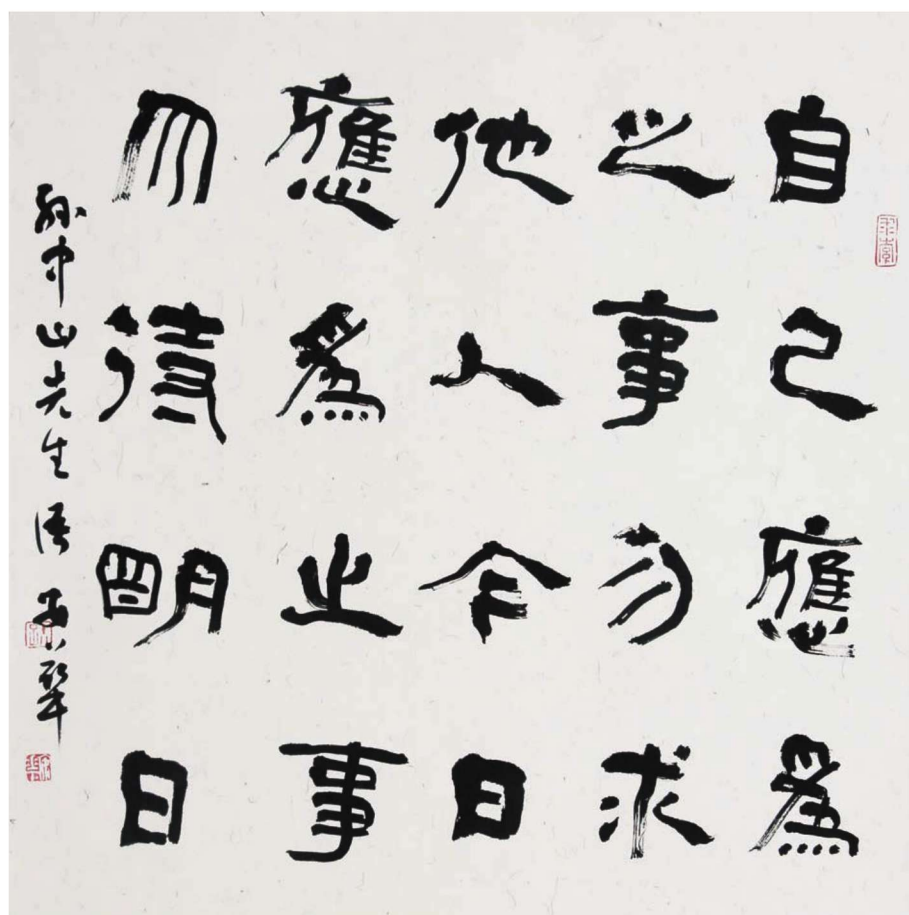 自己應爲
之事勿求
他人今日
應爲之事
勿待明日
孫中山先生語